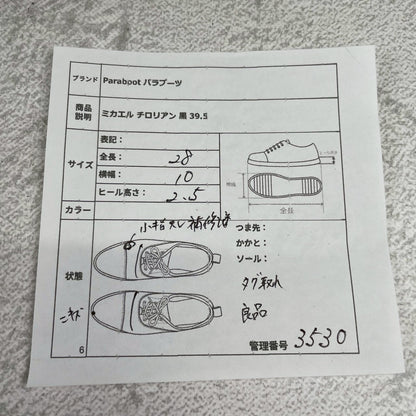 ブランド Paraboot パラブーツ
商品説明 ミカエル チロリアン 黒 39.5
サイズ
表記：
全長： 28
横幅： 10
ヒール高さ： 2.5
ヒール高さ
横幅
全長
カラー
状態
小指スレ補修済
つま先：
かかと：
ソール：
タグ取れ
良品
ニキズ
6
管理番号 3530